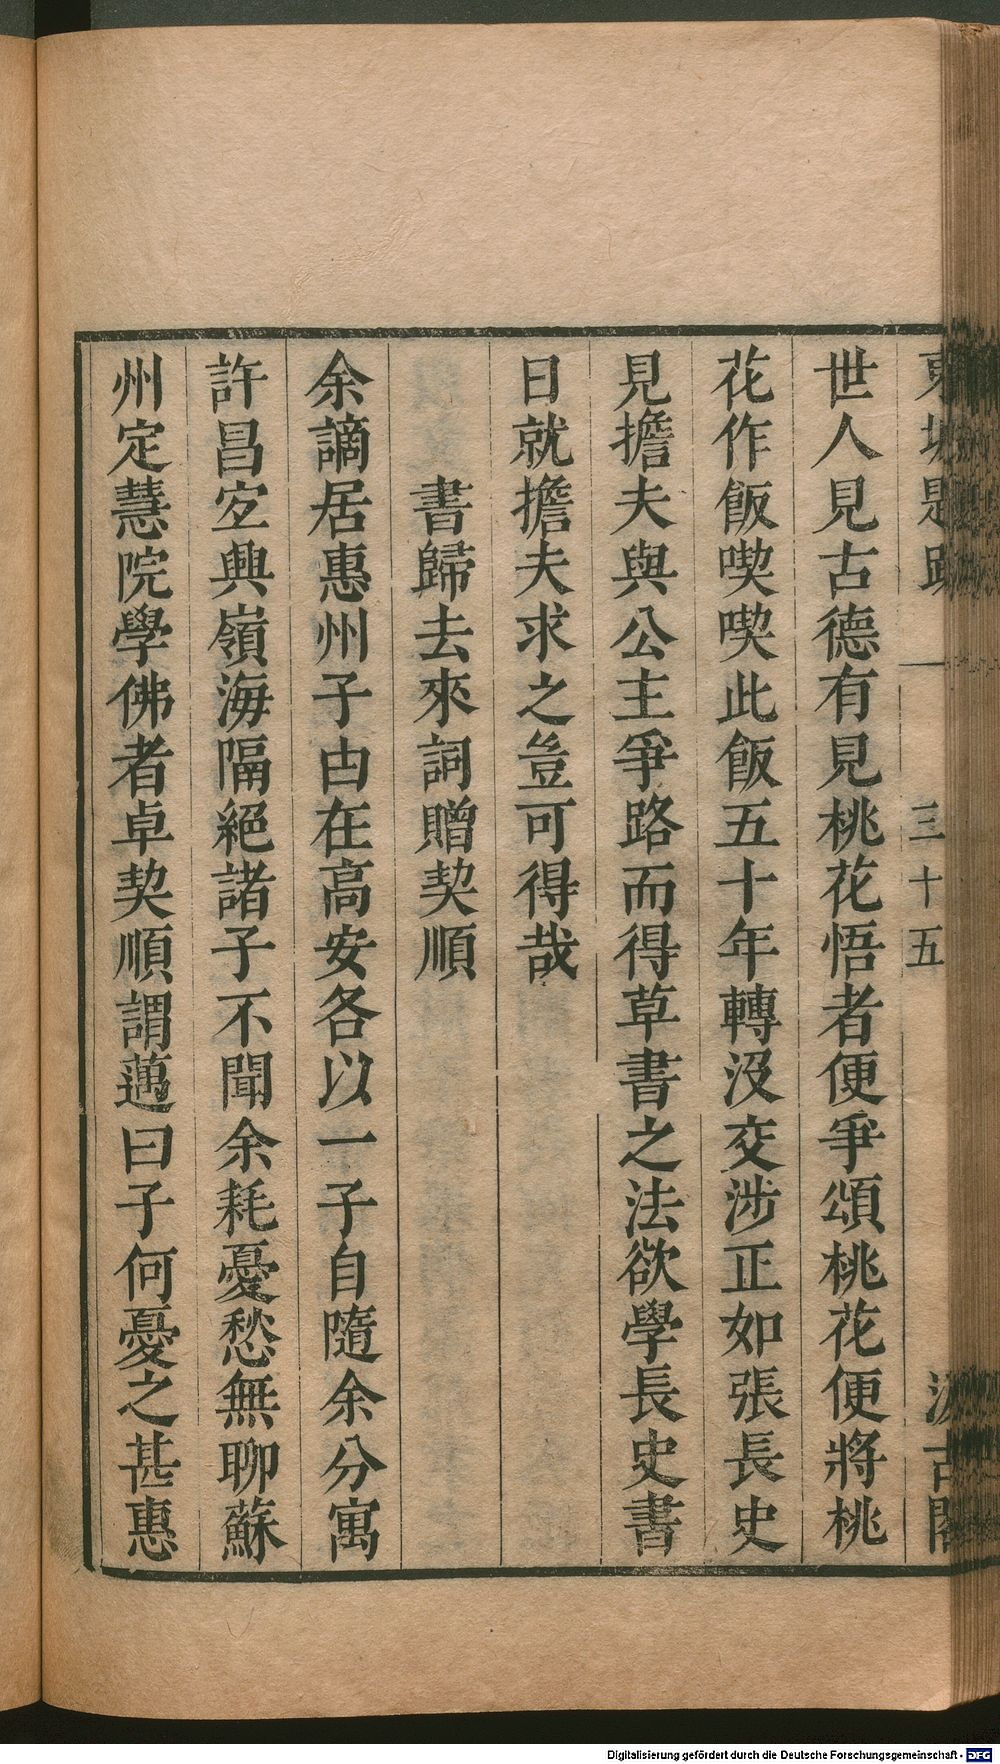 東坡題跋 一 三十五 汲古閣
世人見古德有見桃花悟者便爭頌桃花便將桃
花作飯喫喫此飯五十年轉沒交涉正如張長史
見擔夫與公主爭路而得草書之法欲學長史書
日就擔夫求之豈可得哉
書歸去來詞贈契順
余謫居惠州子由在高安各以一子自隨余分寓
許昌宜興嶺海隔絕諸子不聞余耗憂愁無聊蘇
州定慧院學佛者卓契順謂邁曰子何憂之甚惠
Digitalisierung gefördert durch die Deutsche Forschungsgemeinschaft - DFG